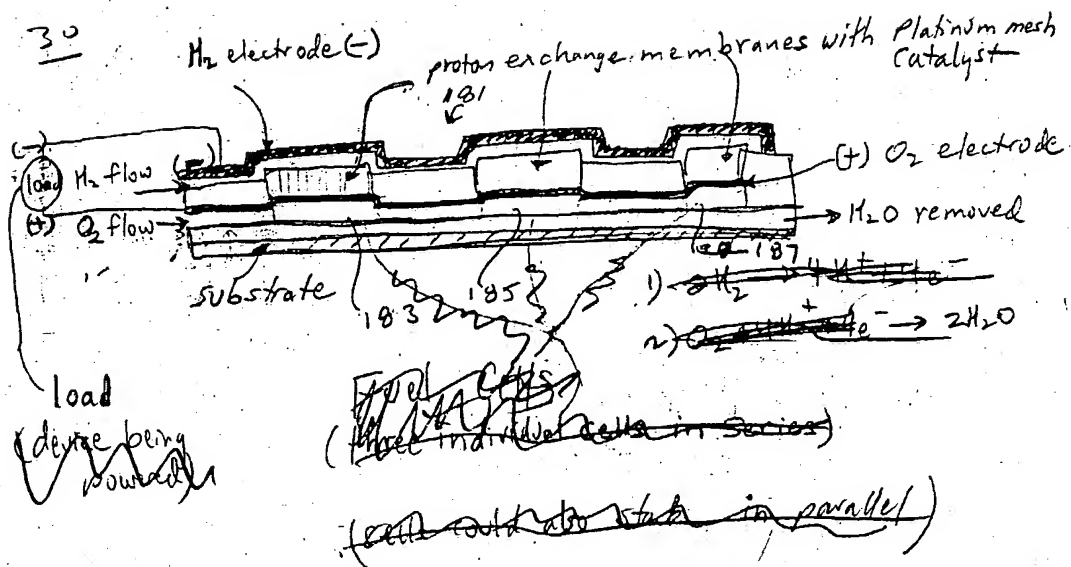 30
H₂ electrode (-)
proton exchange membranes with Platinum mesh
Catalyst
181
(-)
(-)
load
H₂ flow
(+) O₂ electrode
(+)
O₂ flow
H₂O removed
187
substrate
183
185
1) 2H₂ → 4H⁺ + 4e⁻
2) O₂ + 4H⁺ + 4e⁻ → 2H₂O
load
(device being
powered)
Fuel Cells
(three individual cells in series)
(cells could also in parallel)